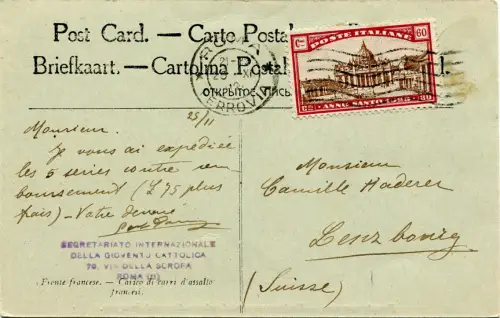 Post Card. — Carte Postale
Briefkaart. — Cartolina Postal
ОТКРЫТОЕ ПИСЬ
ROMA
FERROVIA
POSTE ITALIANE
Cmi 60
ANNO SANTO 1925
25/11
Monsieur.
Je vous ai expédiée
les 5 series contre rem
boursement (L 75 plus
frais) – Votre devoué
SEGRETARIATO INTERNAZIONALE
DELLA GIOVENTÙ CATTOLICA
70, VIA DELLA SCROFA
ROMA
Fronte francese. — Carico di carri d'assalto
francesi.
Monsieur
Camille Haderer
(Suisse)